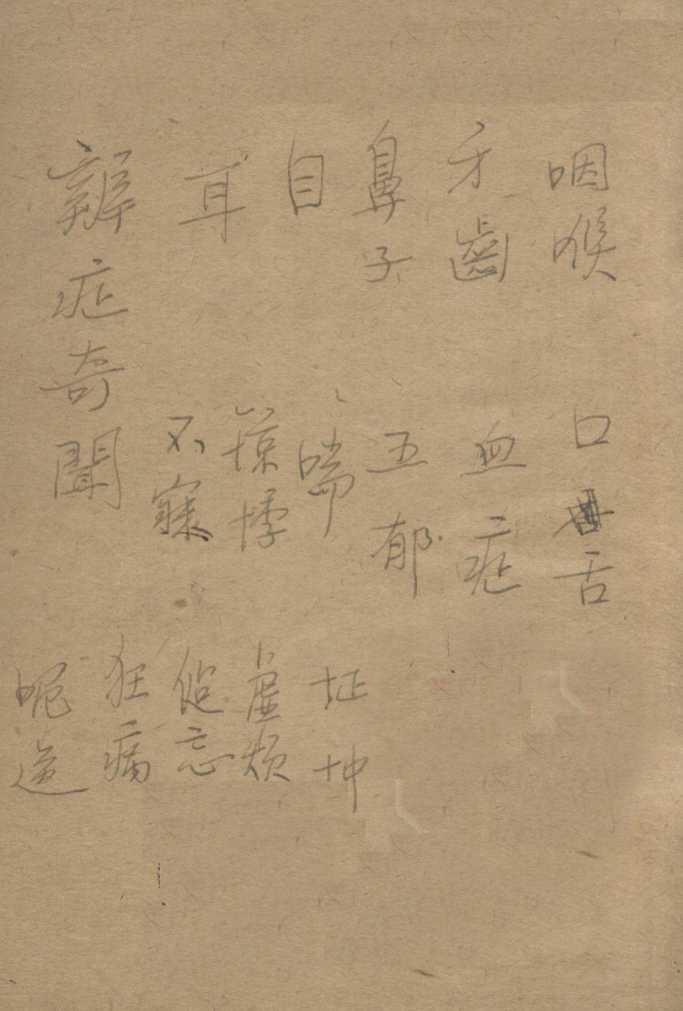 咽喉
牙齒
鼻子
目
耳
辨症奇聞
口舌
血症
五郁
喘
惊悸
不寐
怔忡
虚烦
忘
狂
逆